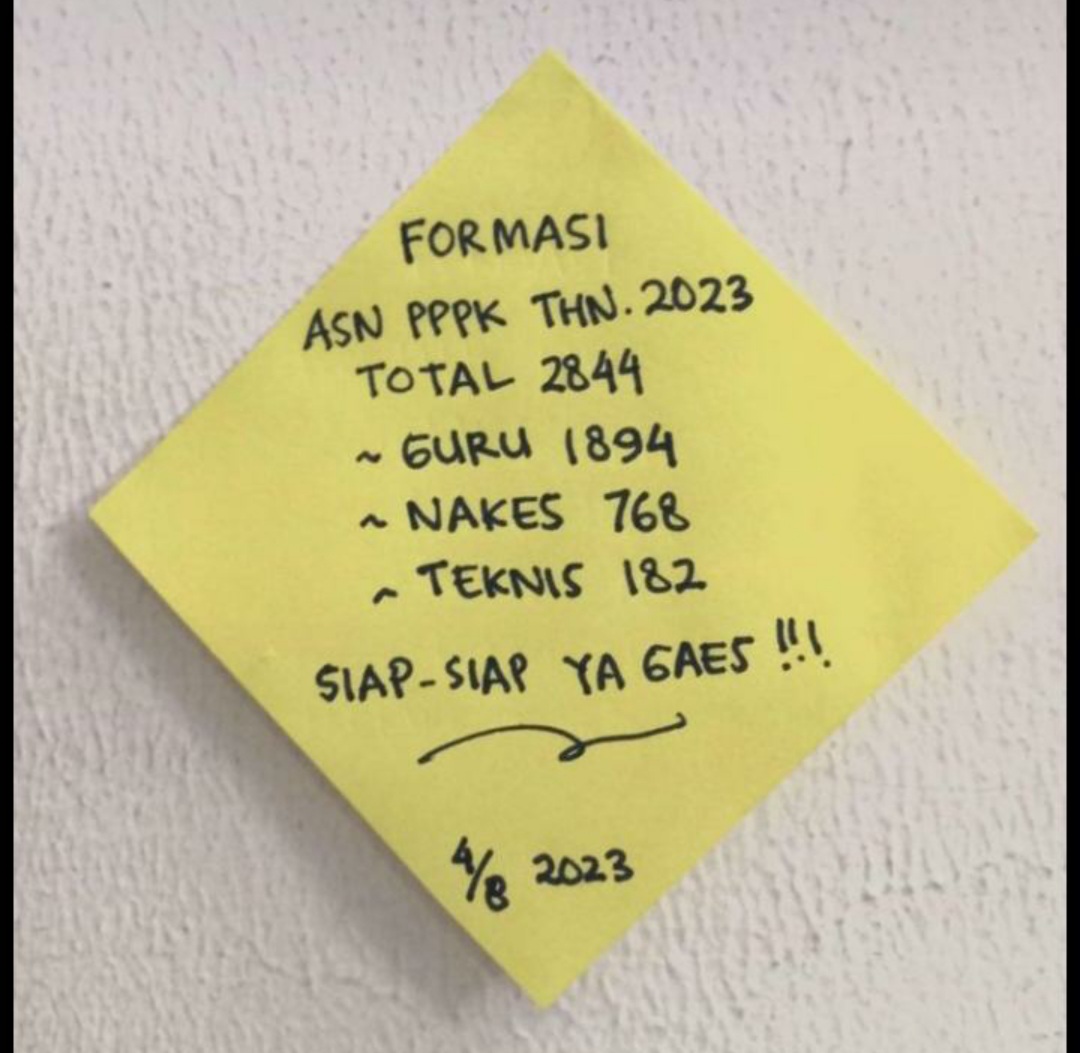 FORMASI
ASN PPPK THN. 2023
TOTAL 2844
~ GURU 1894
~ NAKES 768
~ TEKNIS 182
SIAP-SIAP YA GAES !!!
4/8 2023